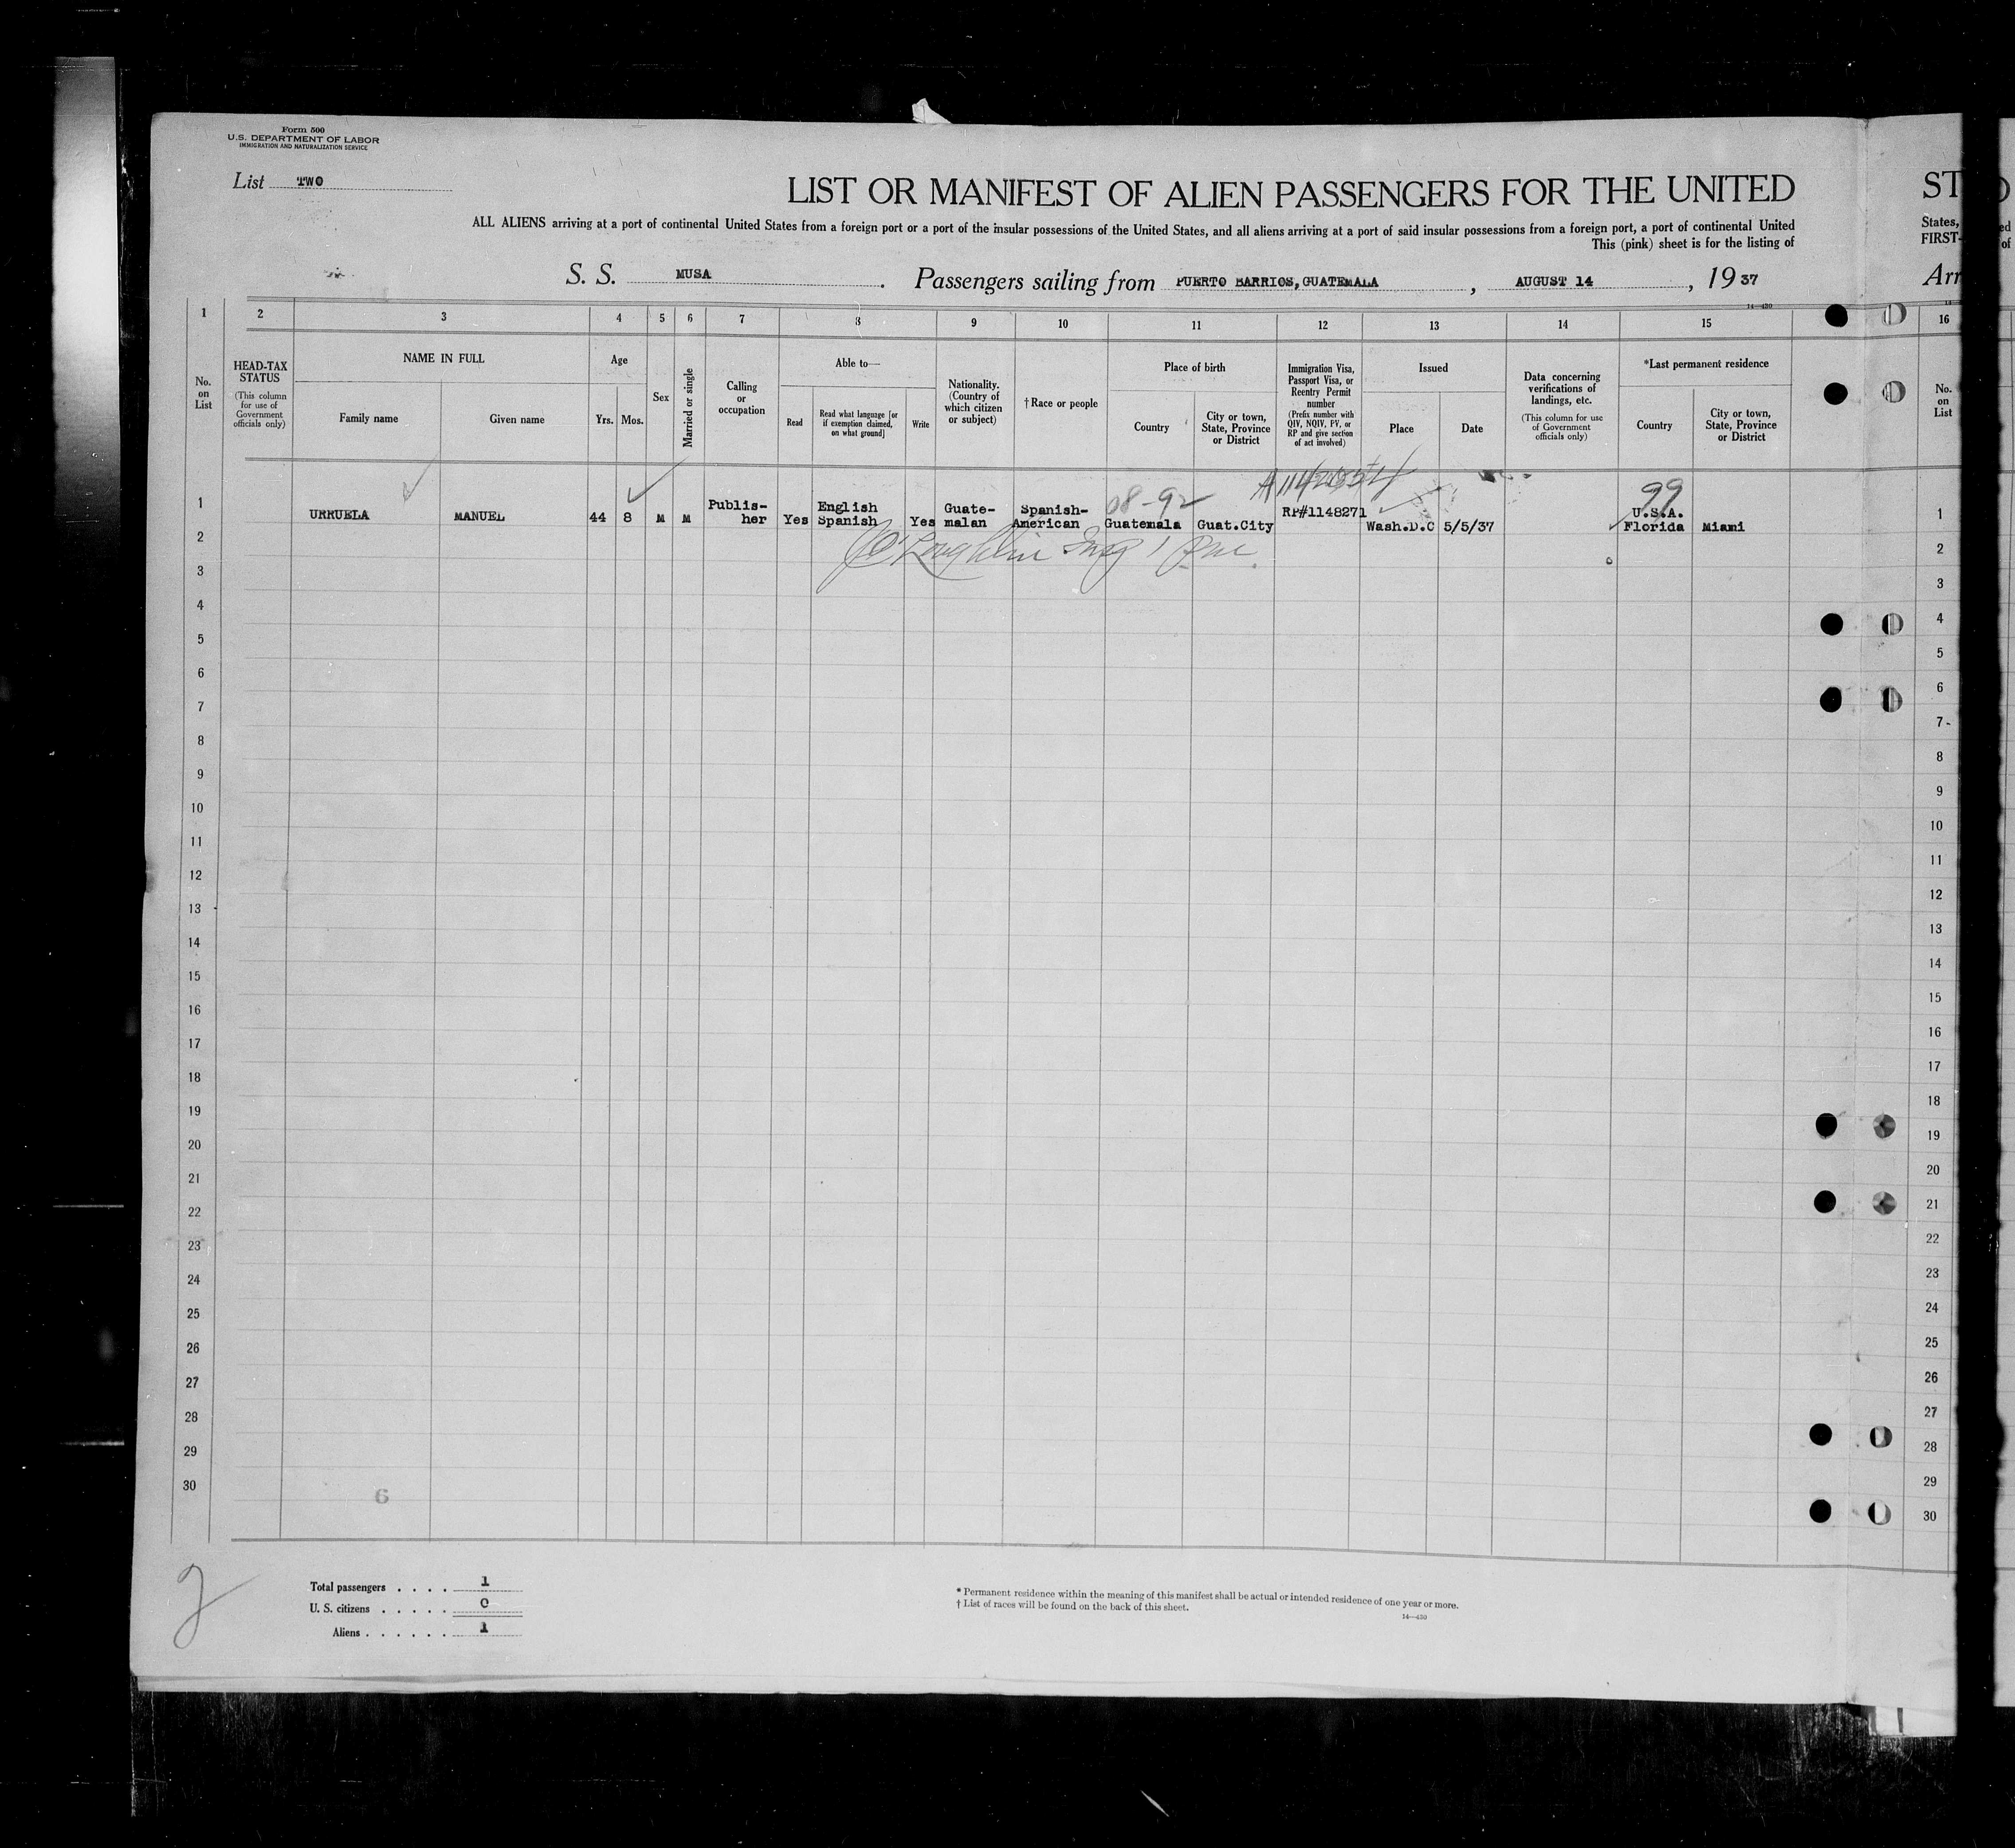 Form 500
U.S. DEPARTMENT OF LABOR
IMMIGRATION AND NATURALIZATION SERVICE
List TWO
LIST OR MANIFEST OF ALIEN PASSENGERS FOR THE UNITED
ST
ALL ALIENS arriving at a port of continental United States from a foreign port or a port of the insular possessions of the United States, and all aliens arriving at a port of said insular possessions from a foreign port, a port of continental United
States,
This (pink) sheet is for the listing of
FIRST-
S. S. MUSA. Passengers sailing from PUERTO BARRIOS, GUATEMALA, AUGUST 14, 1937
Arr
14—430
1 2 3 4 5 6 7 8 9 10 11 12 13 14 15 16
No. on List
HEAD-TAX STATUS
(This column for use of Government officials only)
NAME IN FULL
Family name
Given name
Age
Yrs. Mos.
Sex
Married or single
Calling or occupation
Able to—
Read
Read what language [or if exemption claimed, on what ground]
Write
Nationality. (Country of which citizen or subject)
†Race or people
Place of birth
Country
City or town, State, Province or District
Immigration Visa, Passport Visa, or Reentry Permit number
(Prefix number with QIV, NQIV, PV, or RP and give section of act involved)
Issued
Place
Date
Data concerning verifications of landings, etc.
(This column for use of Government officials only)
*Last permanent residence
Country
City or town, State, Province or District
No. on List
08-92
99
1 URRUELA MANUEL 44 8 M M Publis-her Yes English Spanish Yes Guate-malan Spanish-American Guatemala Guat.City RP#1148271 Wash.D.C 5/5/37 U.S.A. Florida Miami 1
2 2
3 3
4 4
5 5
6 6
7 7
8 8
9 9
10 10
11 11
12 12
13 13
14 14
15 15
16 16
17 17
18 18
19 19
20 20
21 21
22 22
23 23
24 24
25 25
26 26
27 27
28 28
29 29
30 30
6
2
Total passengers . . . . 1
U. S. citizens . . . . . 0
Aliens . . . . . . 1
* Permanent residence within the meaning of this manifest shall be actual or intended residence of one year or more.
† List of races will be found on the back of this sheet.
14—430